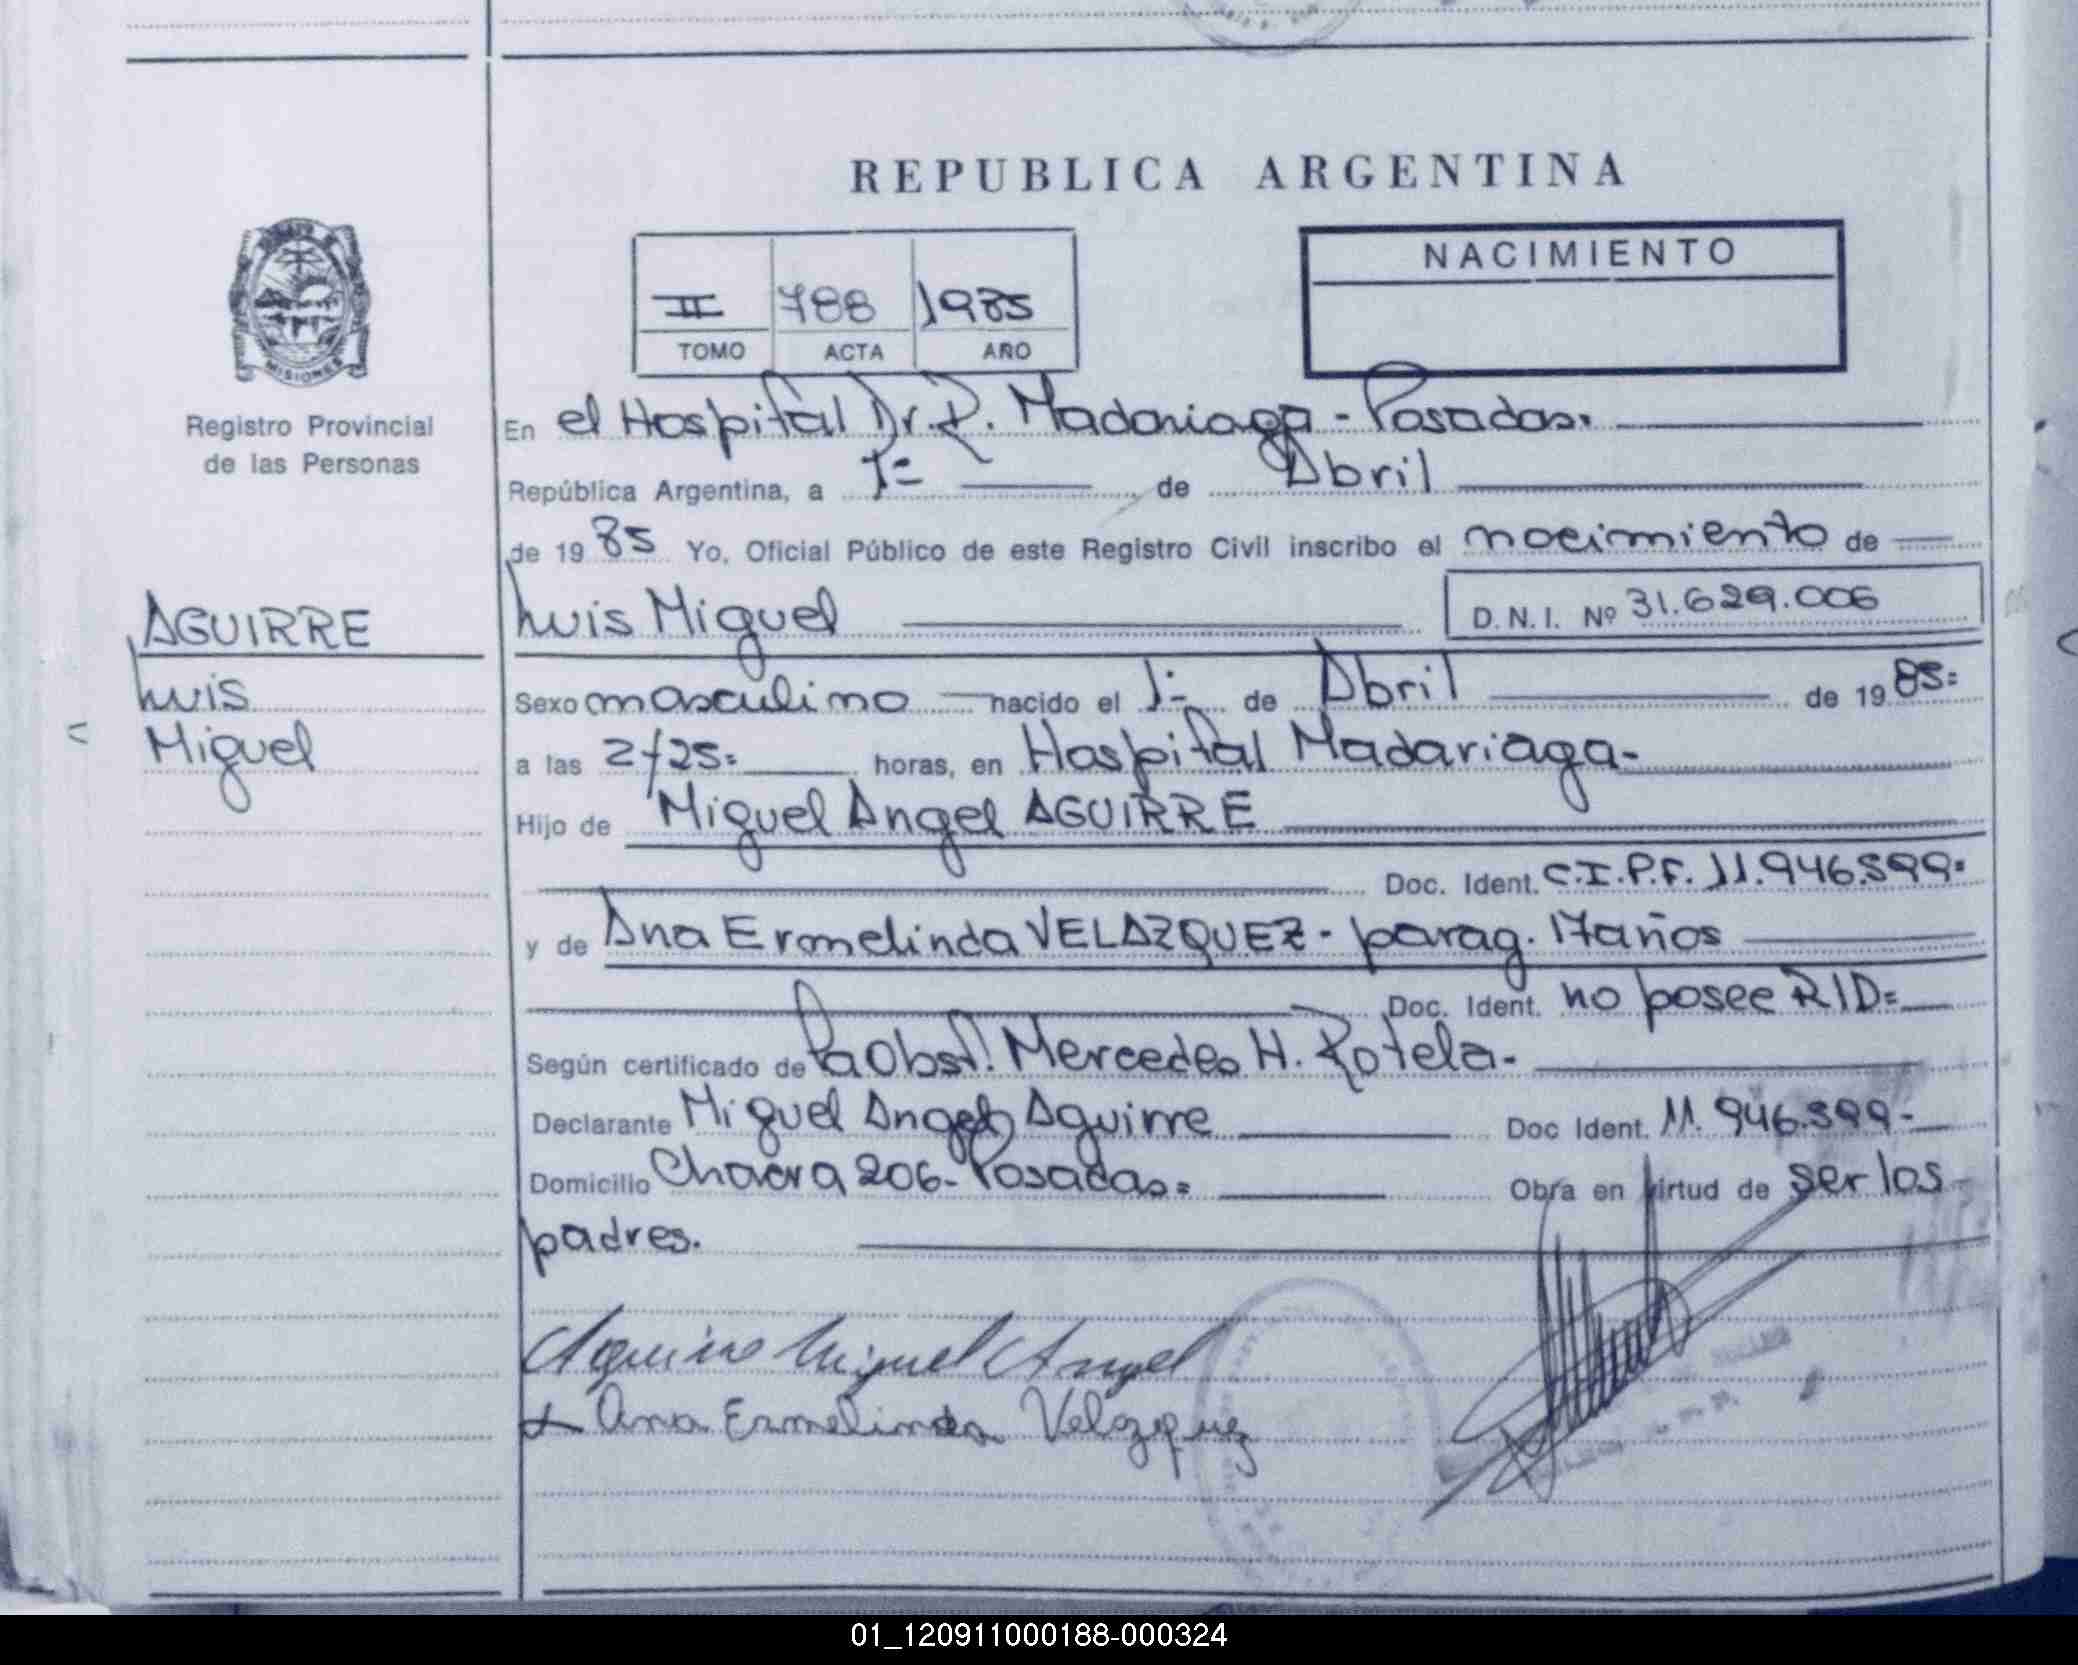 REPUBLICA ARGENTINA
II 788 1985
TOMO ACTA AÑO
NACIMIENTO
MISIONES
Registro Provincial
de las Personas
En el Hospital Dr. R. Madariaga - Posadas.
República Argentina, a 1= de Abril
de 19 85 Yo, Oficial Público de este Registro Civil inscribo el nacimiento de
AGUIRRE
Luis
Miguel
Luis Miguel D.N.I. Nº 31.629.006
Sexo masculino nacido el 1- de Abril de 19 85=
a las 2/25= horas, en Hospital Madariaga-
Hijo de Miguel Angel AGUIRRE
Doc. Ident. C.I.P.F. 11.946.599=
y de Ana Ermelinda VELAZQUEZ - parag. 17 años
Doc. Ident. no posee RID=
Según certificado de la Obst. Mercedes H. Rotela-
Declarante Miguel Angel Aguirre Doc Ident. 11.946.599-
Domicilio Chacra 206- Posadas= Obra en virtud de ser los
padres.
Aguirre Miguel Angel
Ana Ermelinda Velazquez
01_120911000188-000324